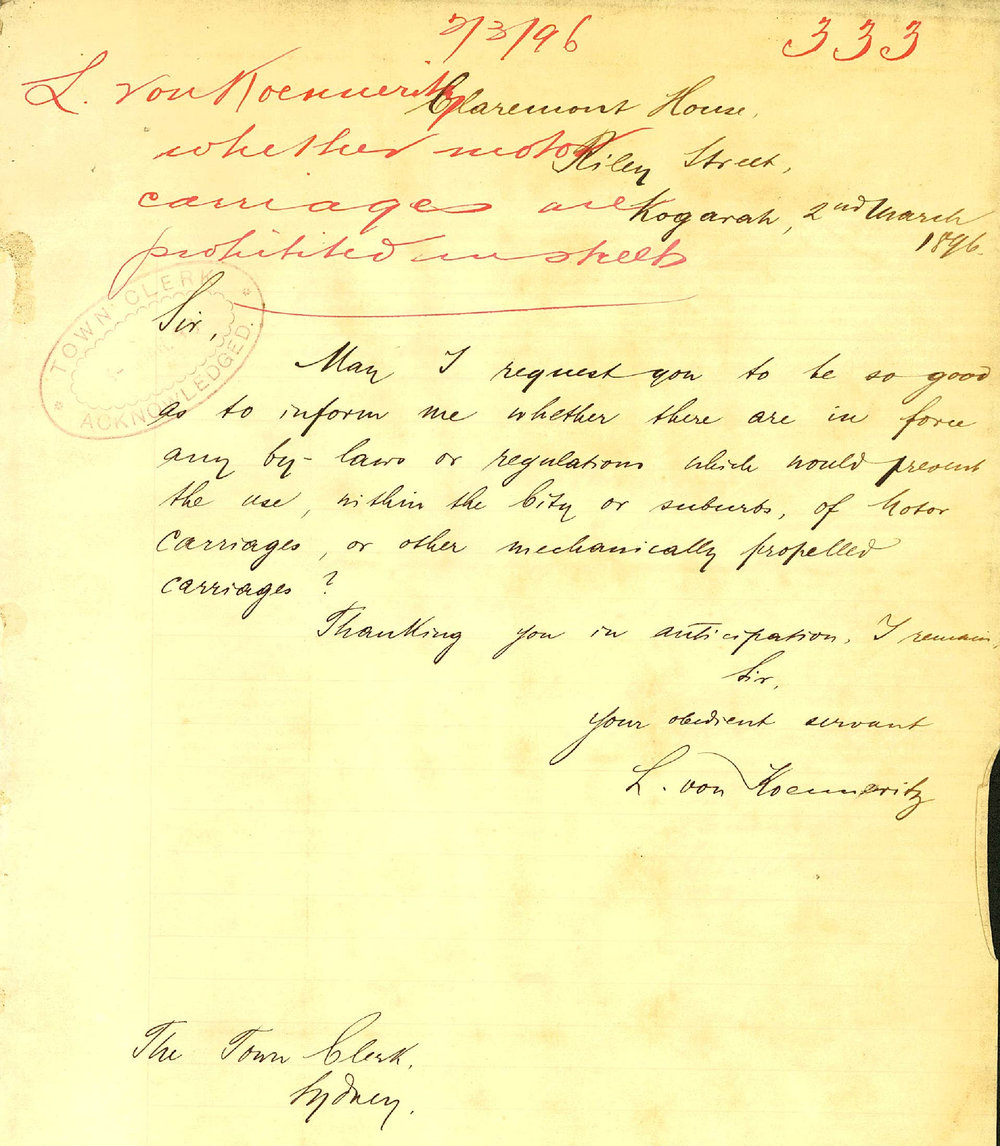 2/3/96
333
L. von Koenneritz
whether motor
carriages are
prohibited in streets
Claremont House,
Riley Street,
Kogarah, 2nd March
1896.
TOWN CLERK
ACKNOWLEDGED.
Sir,
May I request you to be so good
as to inform me whether there are in force
any by-laws or regulations which would prevent
the use, within the City or suburbs, of Motor
Carriages, or other mechanically propelled
carriages?
Thanking you in anticipation, I remain,
Sir,
Your obedient servant
L. von Koenneritz
The Town Clerk,
Sydney.